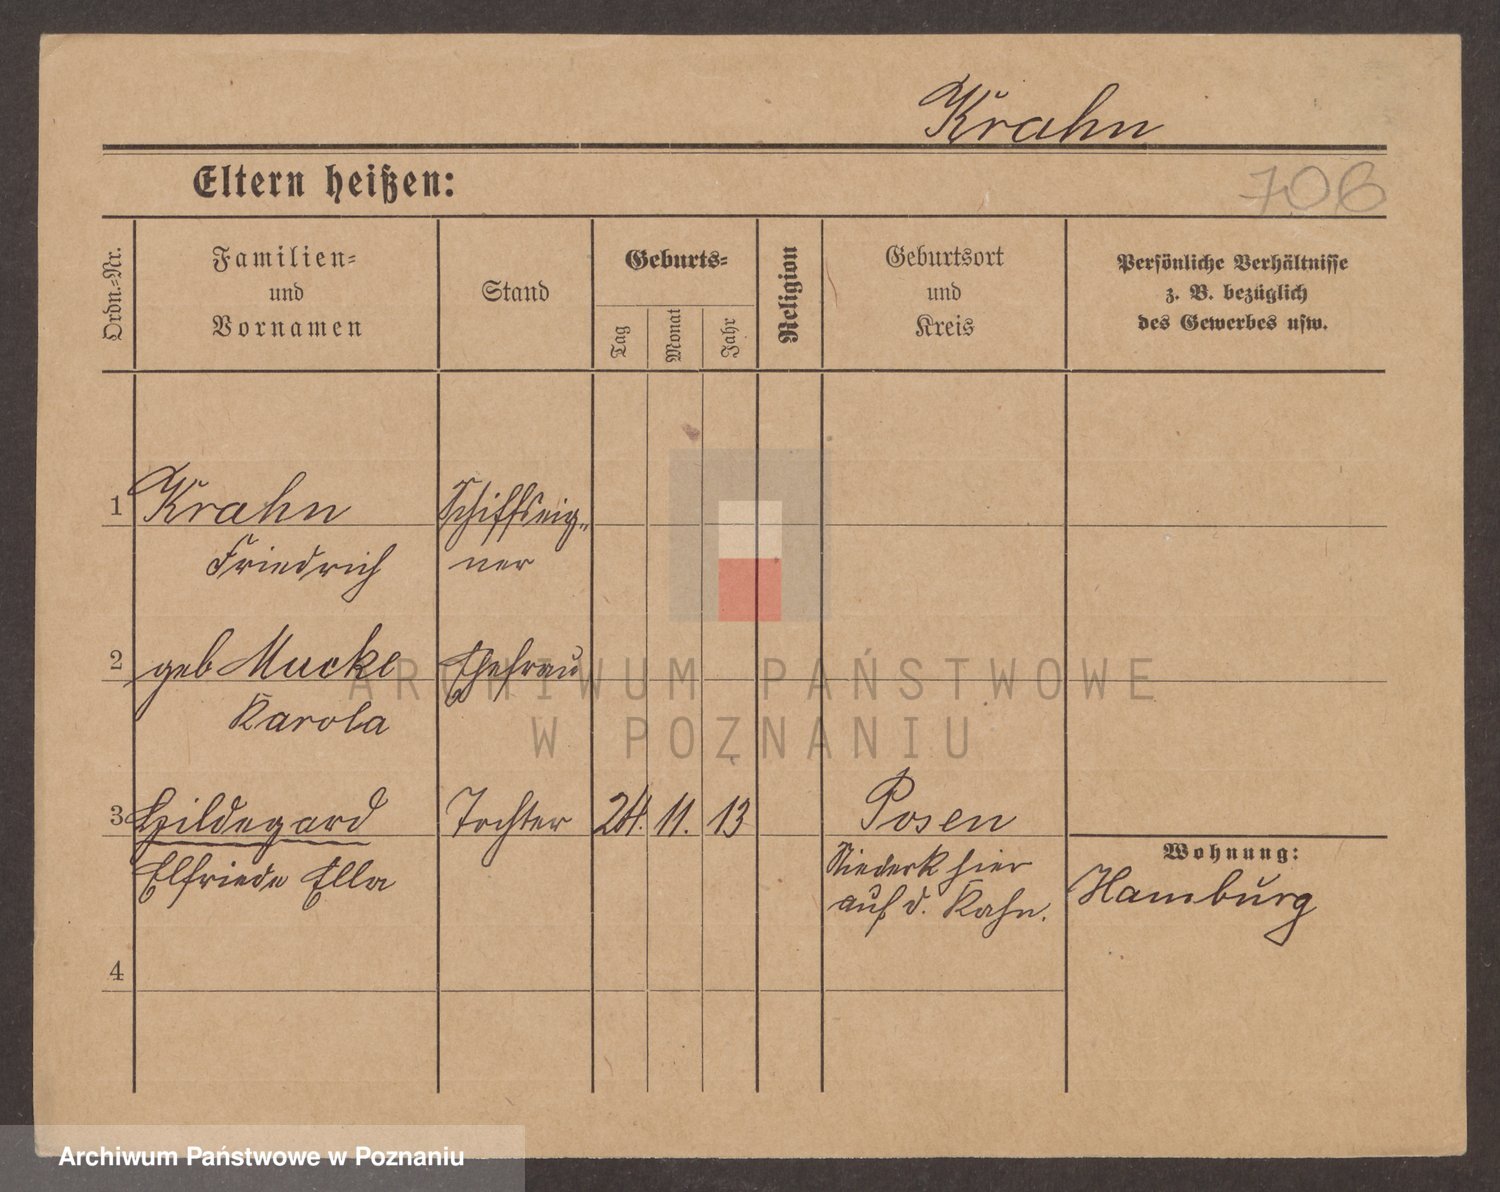 Krahn
Eltern heißen:
706
Ordn.-Nr.
Familien-
und
Vornamen
Stand
Geburts-
Tag
Monat
Jahr
Religion
Geburtsort
und
Kreis
Persönliche Verhältnisse
z. B. bezüglich
des Gewerbes usw.
1 Krahn Schiffseig-
Friedrich ner
2 geb Mucke Ehefrau
Karola
3 Hildegard Tochter 24. 11. 13 Posen
Elfriede Ella
Niederk hier
auf d. Kahn.
Wohnung:
Hamburg
4
ARCHIWUM PAŃSTWOWE
W POZNANIU
Archiwum Państwowe w Poznaniu